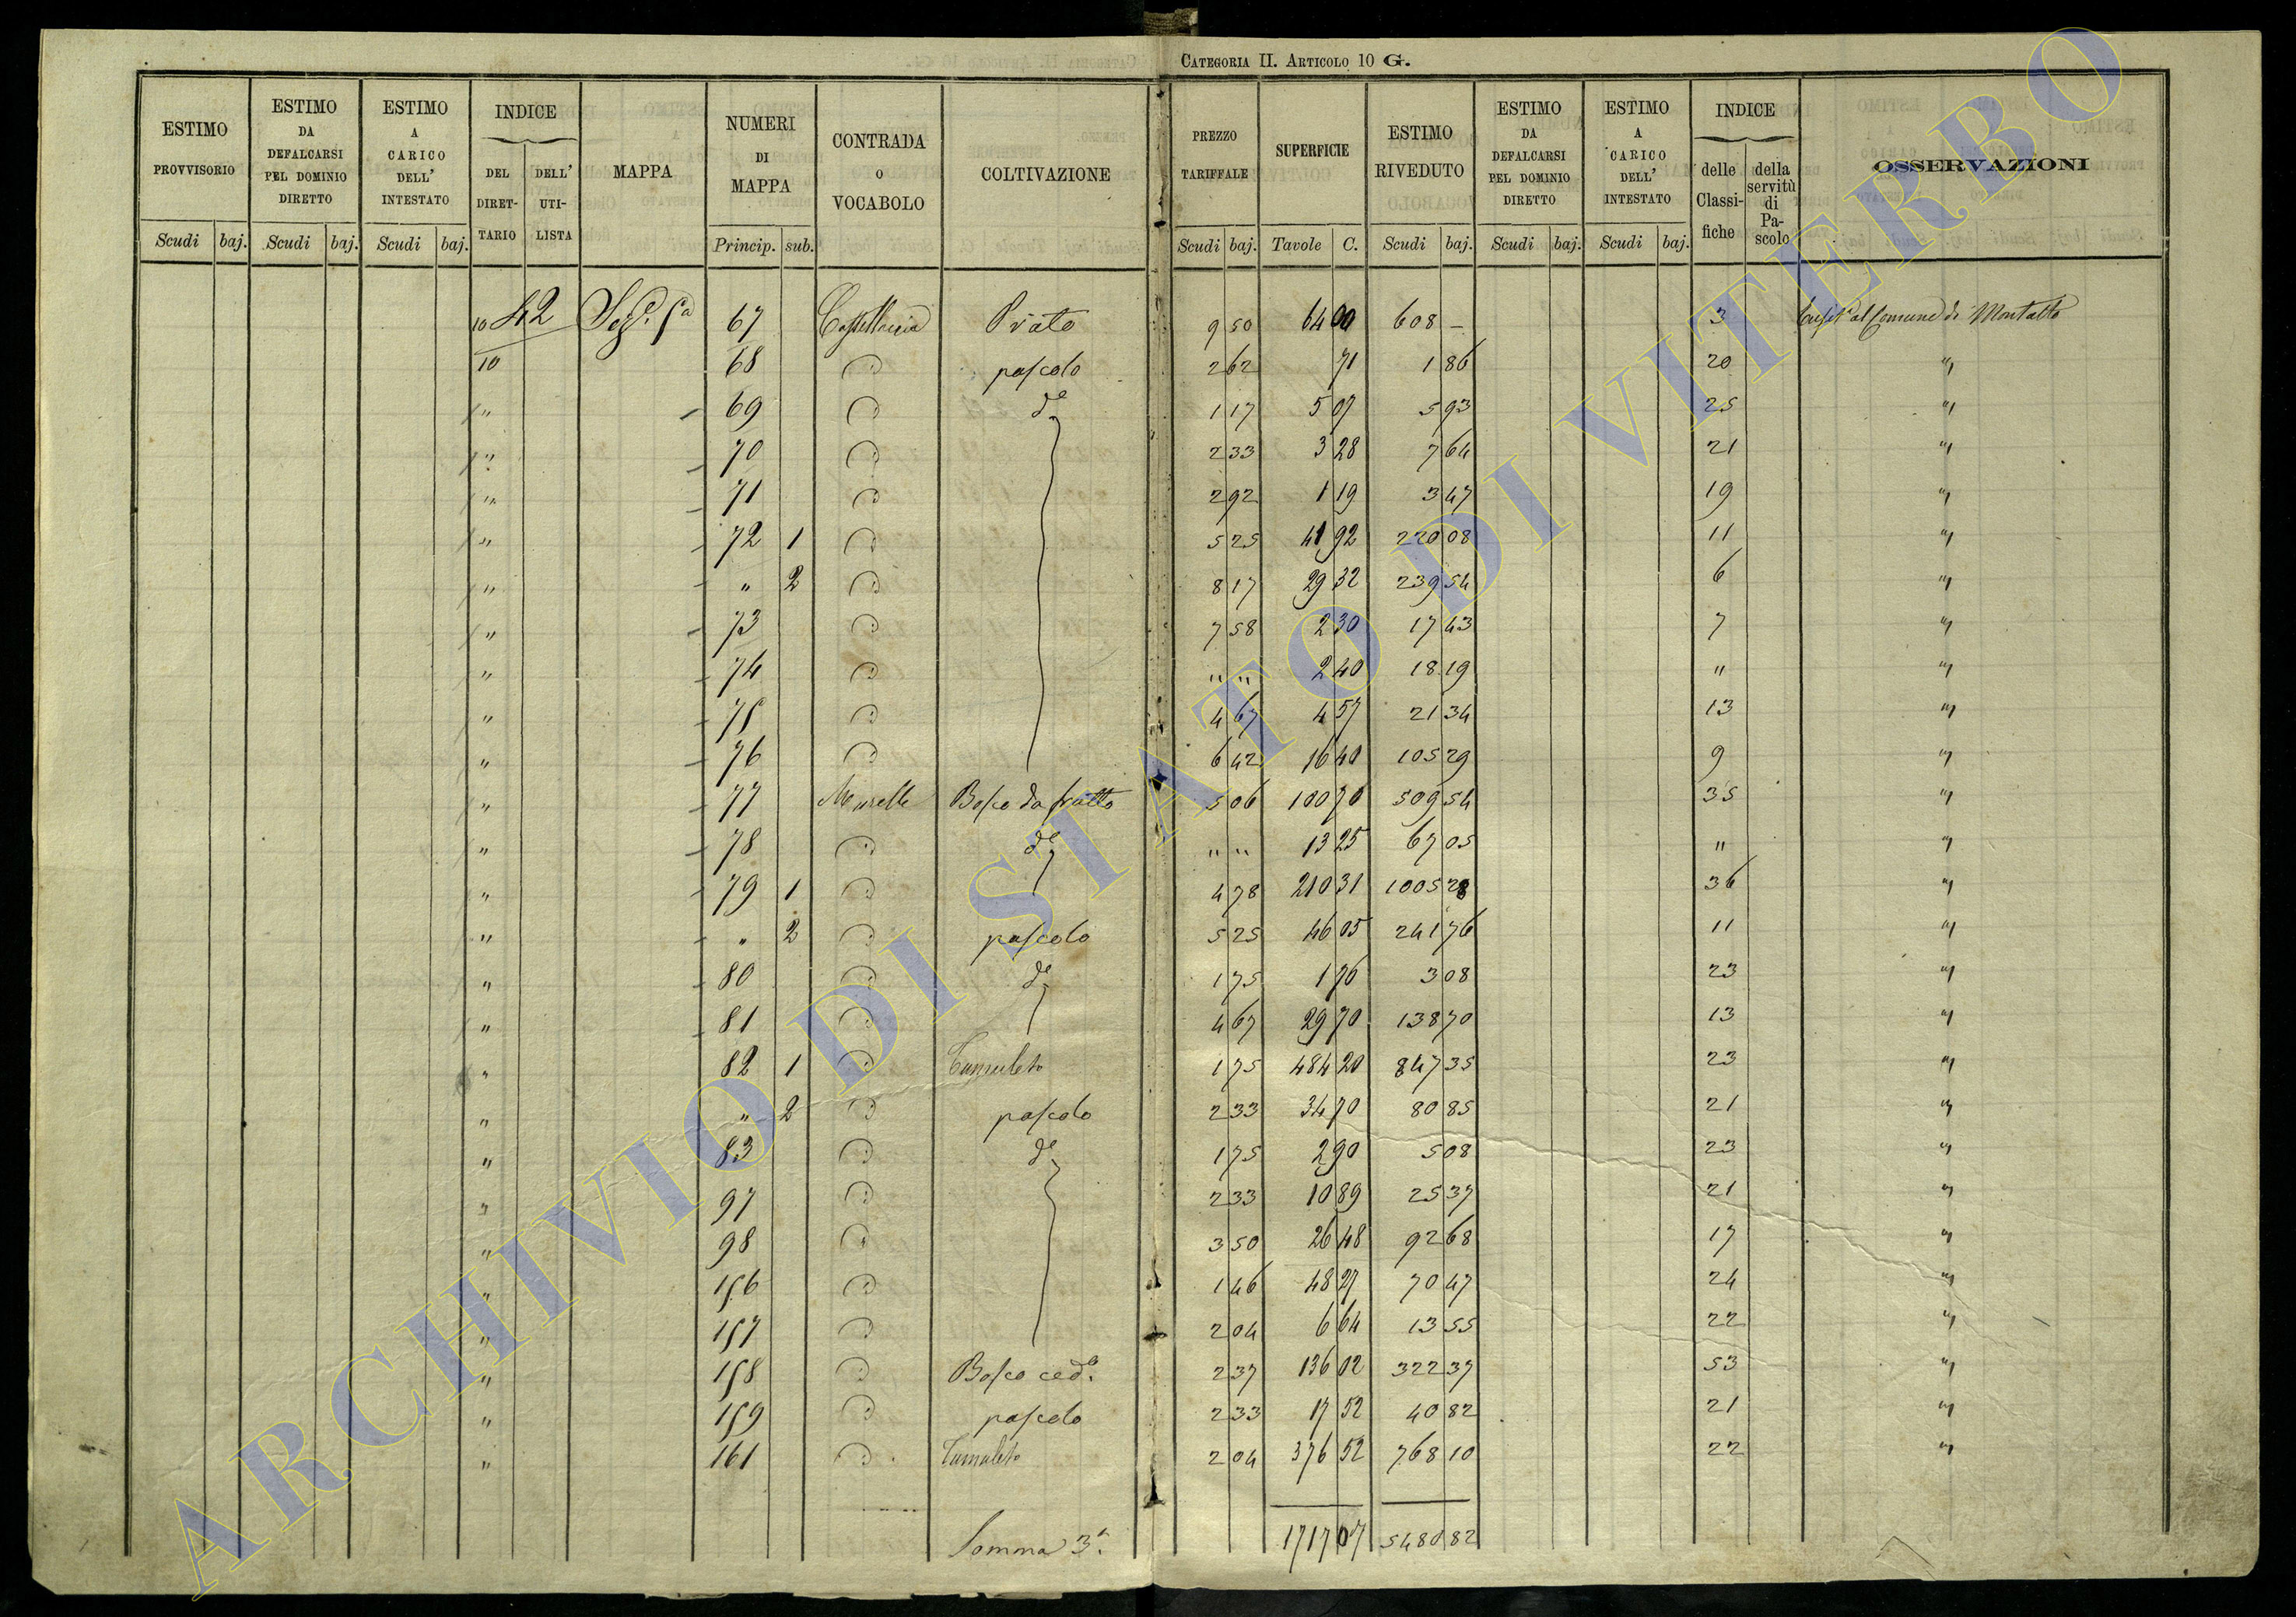 CATEGORIA II. ARTICOLO 10 G.
ESTIMO PROVVISORIO | ESTIMO DA DEFALCARSI PEL DOMINIO DIRETTO | ESTIMO A CARICO DELL' INTESTATO | INDICE DEL DIRET-TARIO | DELL' UTI-LISTA | MAPPA | NUMERI DI MAPPA | CONTRADA O VOCABOLO | COLTIVAZIONE | PREZZO TARIFFALE | SUPERFICIE | ESTIMO RIVEDUTO | ESTIMO DA DEFALCARSI PEL DOMINIO DIRETTO | ESTIMO A CARICO DELL' INTESTATO | INDICE delle Classi-fiche | della servitù di Pa-scolo | OSSERVAZIONI
Scudi baj. Scudi baj. Scudi baj. Princip. sub. Scudi baj. Tavole C. Scudi baj. Scudi baj. Scudi baj.
10 42 Sez.e 5a 67 Castellaccia Prato 9 50 64 00 608 – 3 al Comune di Montalto
10 68 pascolo 2 62 71 1 86 20 "
" 69 do 1 17 5 07 5 93 25 "
" 70 2 33 3 28 7 64 21 "
" 71 2 92 1 19 3 47 19 "
" 72 1 5 25 41 92 220 08 11 "
" " 2 8 17 29 32 239 54 6 "
" 73 7 58 2 30 17 43 7 "
" 74 " " 2 40 18 19 " "
" 75 4 67 4 57 21 34 13 "
" 76 6 42 16 40 105 29 9 "
" 77 Murelle Bosco da frutto 5 06 100 70 509 54 35 "
" 78 do " " 13 25 67 05 " "
" 79 1 4 78 210 31 1005 28 36 "
" " 2 pascolo 5 25 46 05 241 76 11 "
" 80 do 1 75 1 76 3 08 23 "
" 81 4 67 29 70 138 70 13 "
" 82 1 Tumuleto 1 75 484 20 847 35 23 "
" " 2 pascolo 2 33 34 70 80 85 21 "
" 83 do 1 75 2 90 5 08 23 "
" 97 2 33 10 89 25 37 21 "
" 98 3 50 26 48 92 68 17 "
" 156 1 46 48 27 70 47 24 "
" 157 2 04 6 64 13 55 22 "
" 158 Bosco ced.o 2 37 136 02 322 37 53 "
" 159 pascolo 2 33 17 52 40 82 21 "
" 161 Tumuleto 2 04 376 52 768 10 22 "
Somma 3a. 1717 07 5480 82
ARCHIVIO DI STATO DI VITERBO